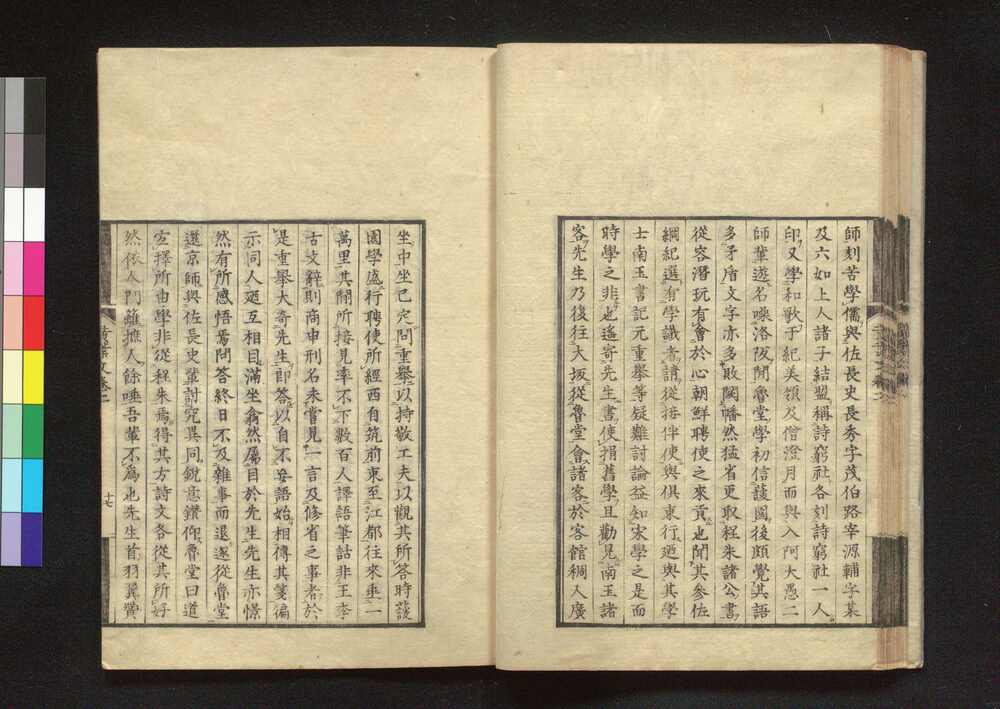 師刻苦學儒與佐長史長秀字茂伯路宰源輔字某
及六如上人諸子結盟稱詩窮社各刻詩窮社一人
印又學和歌于紀美領及僧澄月而與入阿大愚二
師輩遊名噪洛阪間魯堂學初信蘐園後頗覺其語
多矛盾文字亦多敗闕幡然猛省更取程朱諸公書
從容潛玩有會於心朝鮮聘使之來貢也聞其參佐
綱紀選有學識者請從接伴使與俱東行迺與其學
士南玉書記元重擧等疑難討論益知宋學之是而
時學之非也遙寄先生書使捐舊學且勸見南玉諸
客先生乃後往大坂從魯堂會諸客於客館稠人廣
坐中坐已定問重擧以持敬工夫以觀其所答時蘐
園學盛行聘使所經西自筑前東至江都往來垂一
萬里其間所接見率不下數百人譯語筆話非王李
古文辭則商申刑名未嘗見一言及修省之事者於
是重擧大奇先生卽答以自不妄語始相傳其箋徧
示同人迺互相目滿坐翕然屬目於先生先生亦憬
然有所感悟焉問答終日不及雜事而退遂從魯堂
還京師與佐長史輩討究異同銳意鑽仰魯堂曰道
宜擇所由學非從程朱焉得其方詩文各從其所好
然依人門籬撫人餘唾吾輩不爲也先生首羽翼贊
十七